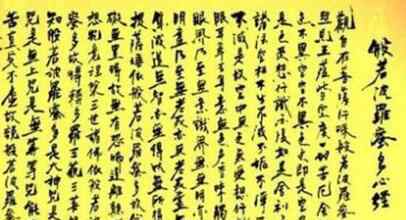 般若波羅蜜多心經
觀自在菩薩行深般若波羅蜜
照見五蘊皆空度一切苦厄舍
色不異空空不異色色即是空
是色受想行識亦復如是舍利
諸法空相不生不滅不垢不淨
不減是故空中無色無受想行
眼耳鼻舌身意無色聲香味觸
眼界乃至無意識界無無明亦
明盡乃至無老死亦無老死
集滅道無智亦無得以無所得
提薩埵依般若波羅蜜多
礙無罣礙故無有恐怖遠離顛
想究竟涅槃三世諸佛依般若
蜜多故得阿耨多羅三藐三菩
知般若波羅蜜多是大神咒
咒是無上咒是無等等咒能
苦真實不虛故說般若波羅蜜